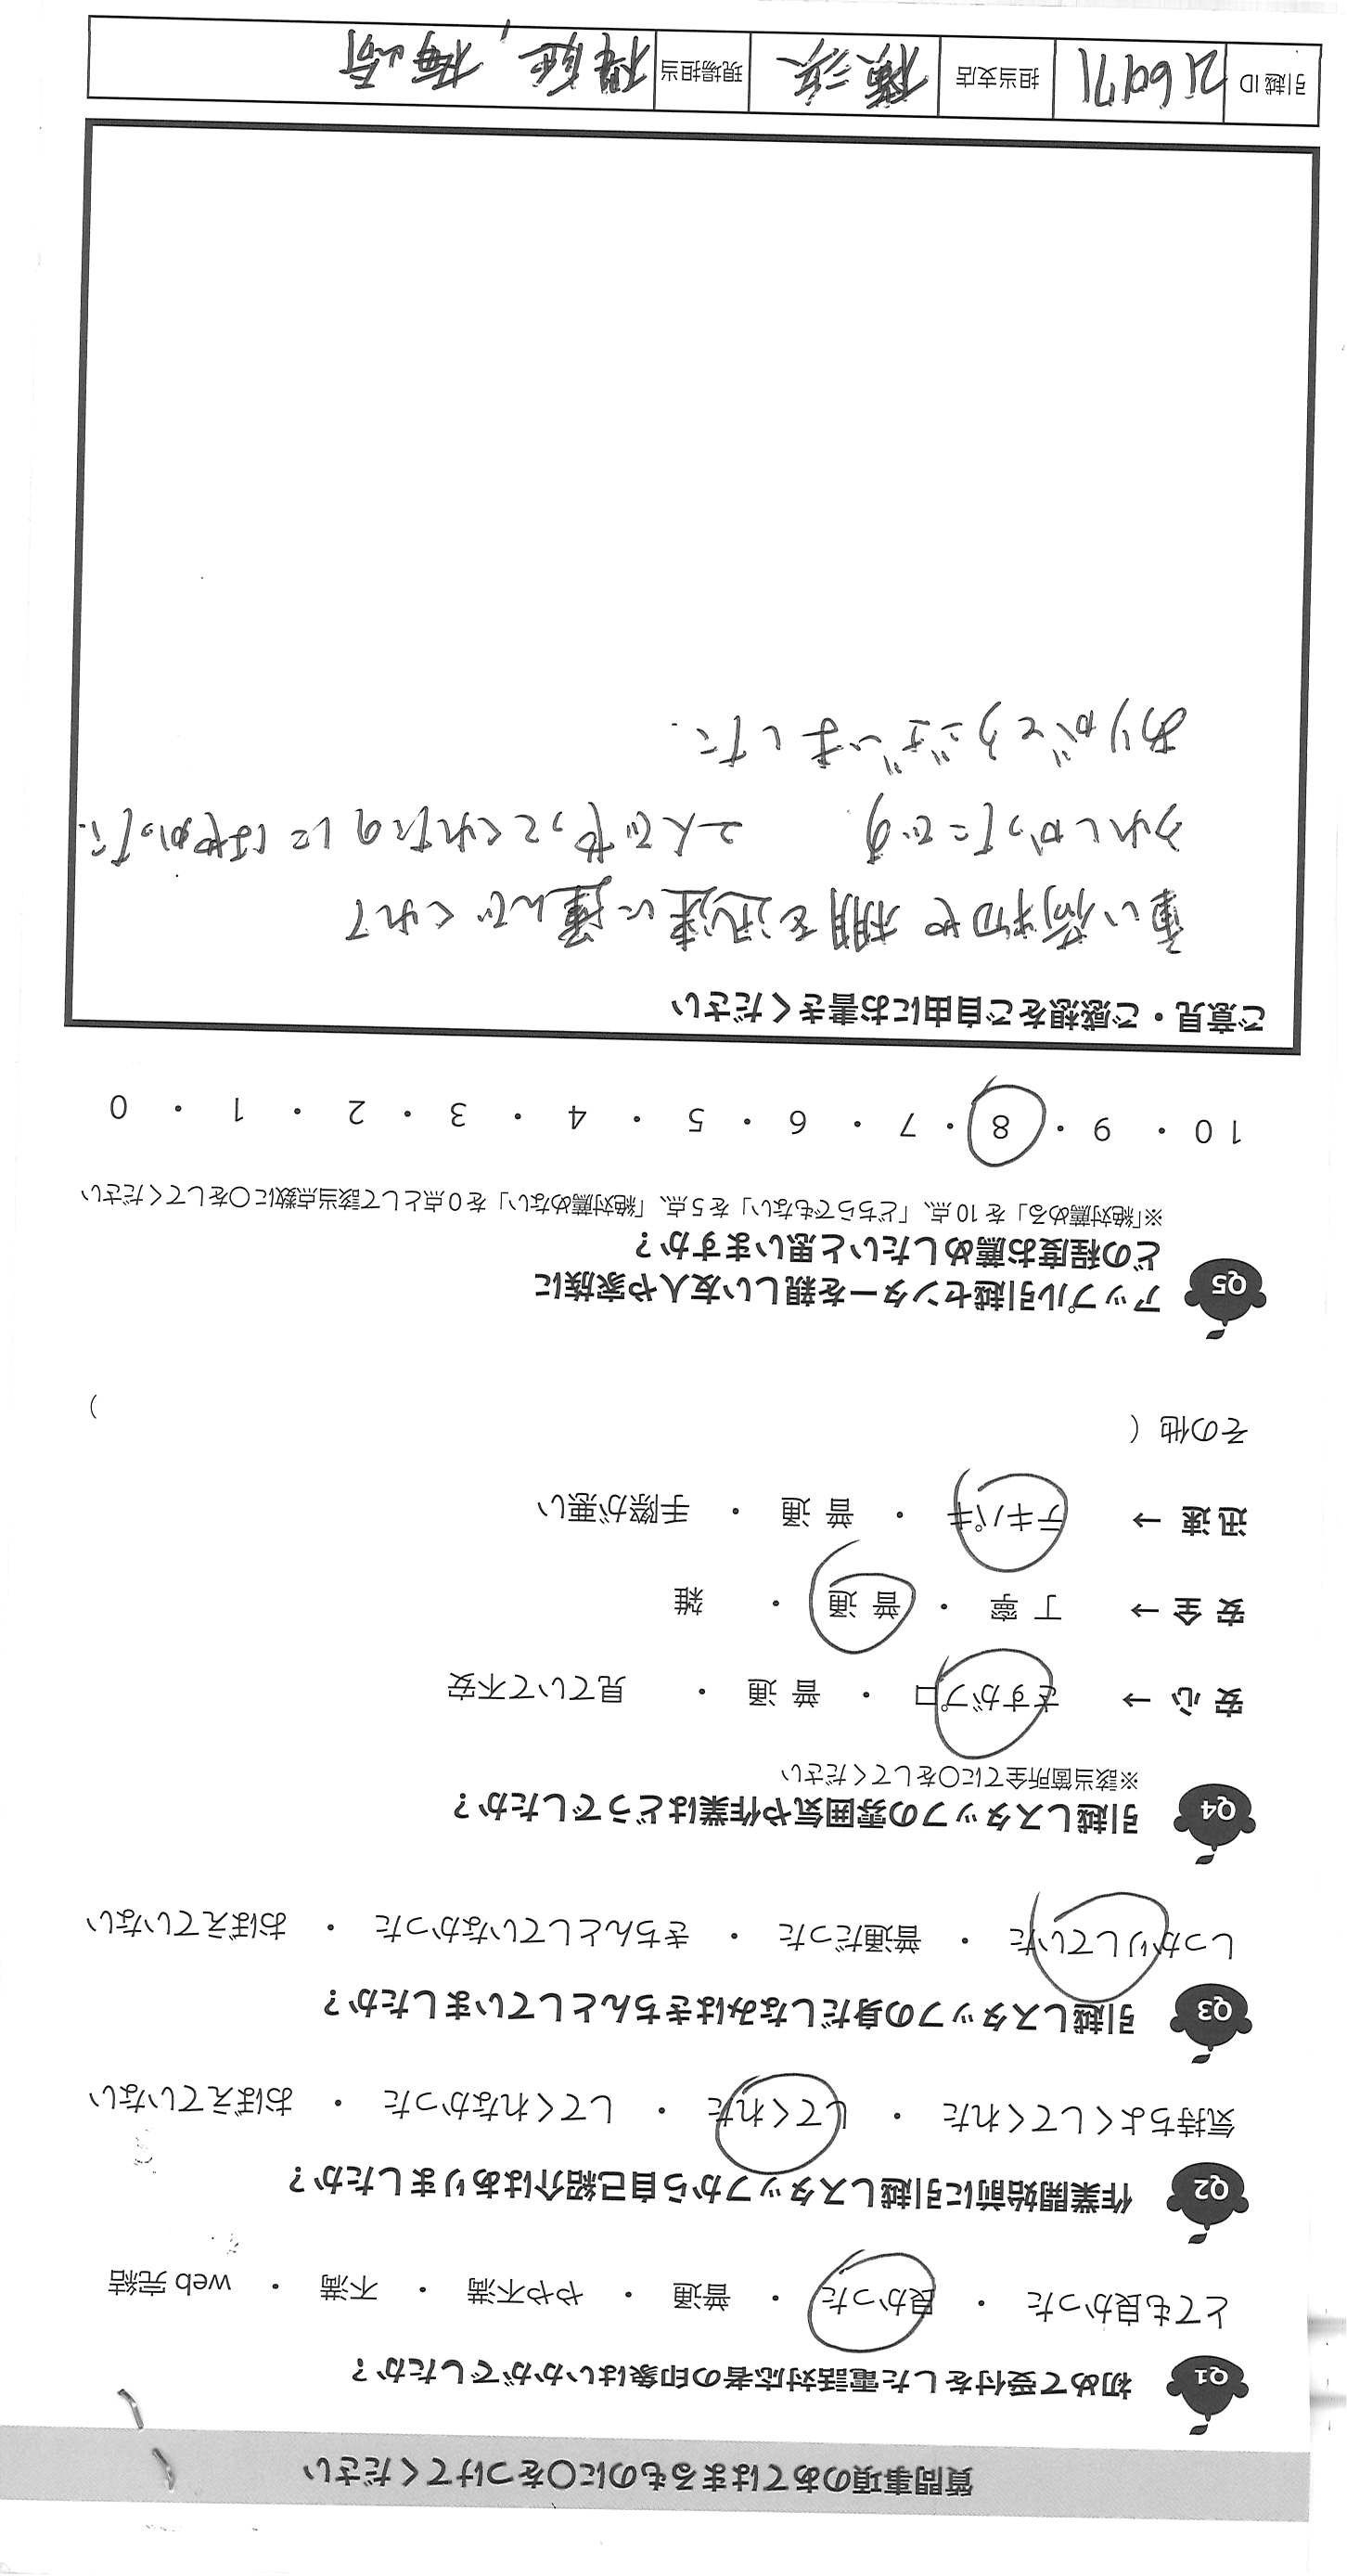 質問事項のあてはまるものに〇をつけてください
Q1 初めて受付をした電話対応者の印象はいかがでしたか?
とても良かった ・ 良かった ・ 普通 ・ やや不満 ・ 不満 ・ web 完結
Q2 作業開始前に引越しスタッフから自己紹介はありましたか?
気持ちよくしてくれた ・ してくれた ・ してくれなかった ・ おぼえていない
Q3 引越しスタッフの身だしなみはきちんとしていましたか?
しっかりしていた ・ 普通だった ・ きちんとしていなかった ・ おぼえていない
Q4 引越しスタッフの雰囲気や作業はどうでしたか?
※該当箇所全てに〇をしてください
安 心 → さすがプロ ・ 普 通 ・ 見ていて不安
安 全 → 丁 寧 ・ 普 通 ・ 雑
迅 速 → テキパキ ・ 普 通 ・ 手際が悪い
その他 ( )
Q5 アップル引越センターを親しい友人や家族に
どの程度お薦めしたいと思いますか?
※「絶対薦める」を 10 点、「どちらでもない」を 5 点、「絶対薦めない」を 0 点として該当点数に〇をしてください
10 ・ 9 ・ 8 ・ 7 ・ 6 ・ 5 ・ 4 ・ 3 ・ 2 ・ 1 ・ 0
ご意見・ご感想をご自由にお書きください
重い荷物や棚を迅速に運んでくれて
うれしかったです 二人でやってくれたのにはやかった.
ありがとうございました.
引越 ID 216971 担当支店 横浜 現場担当 梅崎